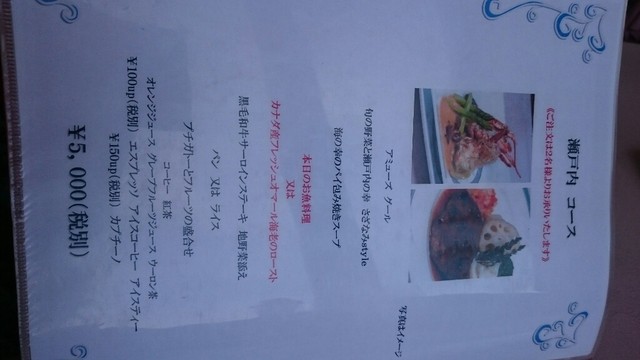 瀬戸内　コース
《ご注文は2名様よりお承りいたします》
写真はイメージ
アミューズ　グール
旬の野菜と瀬戸内の幸　さざなみstyle
海の幸のパイ包み焼きスープ
本日のお魚料理
又は
カナダ産フレッシュオマール海老のロースト
黒毛和牛サーロインステーキ　地野菜添え
パン　又は　ライス
プチガトーとフルーツの盛合せ
コーヒー　紅茶
オレンジジュース　グレープフルーツジュース　ウーロン茶
￥100up(税別)　エスプレッソ　アイスコーヒー　アイスティー
￥150up(税別)　カプチーノ
￥5,000(税別)